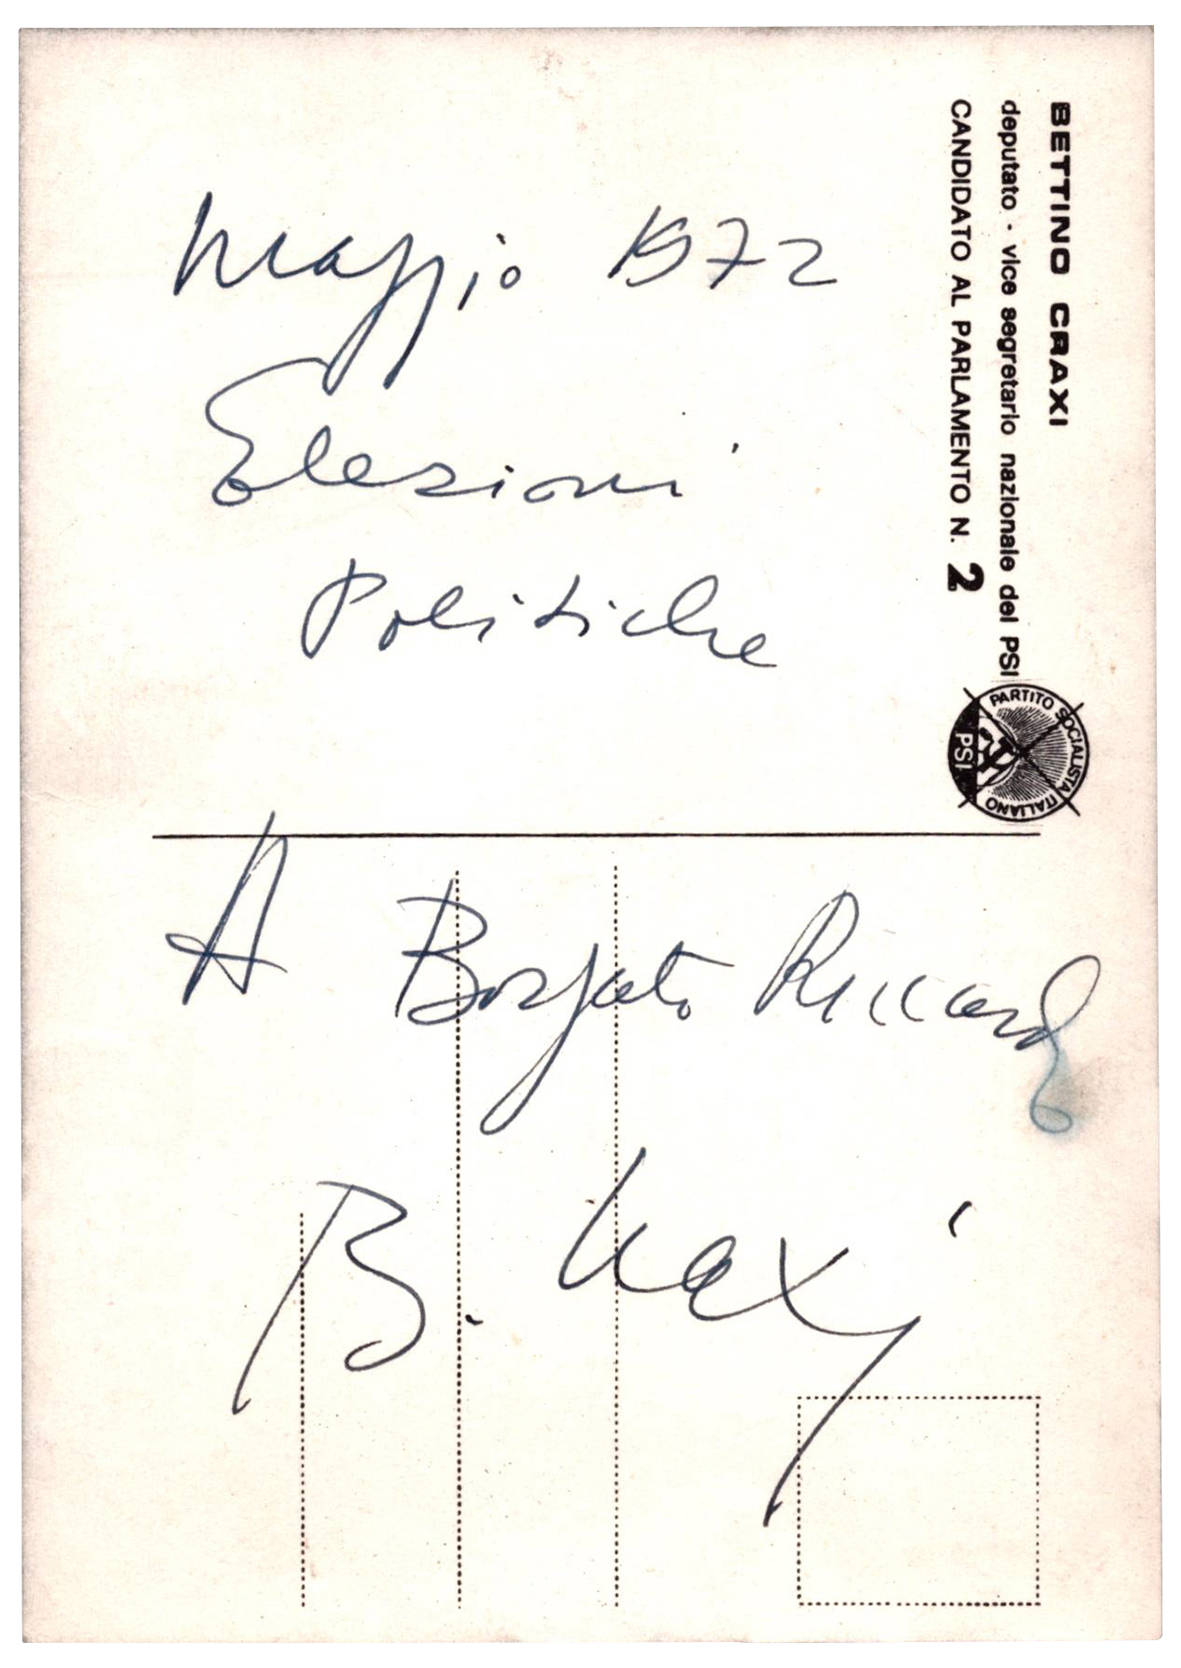 BETTINO CRAXI
deputato - vice segretario nazionale del PSI
CANDIDATO AL PARLAMENTO N. 2
PARTITO SOCIALISTA ITALIANO
PSI
Maggio 1972
Elezioni
Politiche
A Borgato Riccardo
B. Craxi